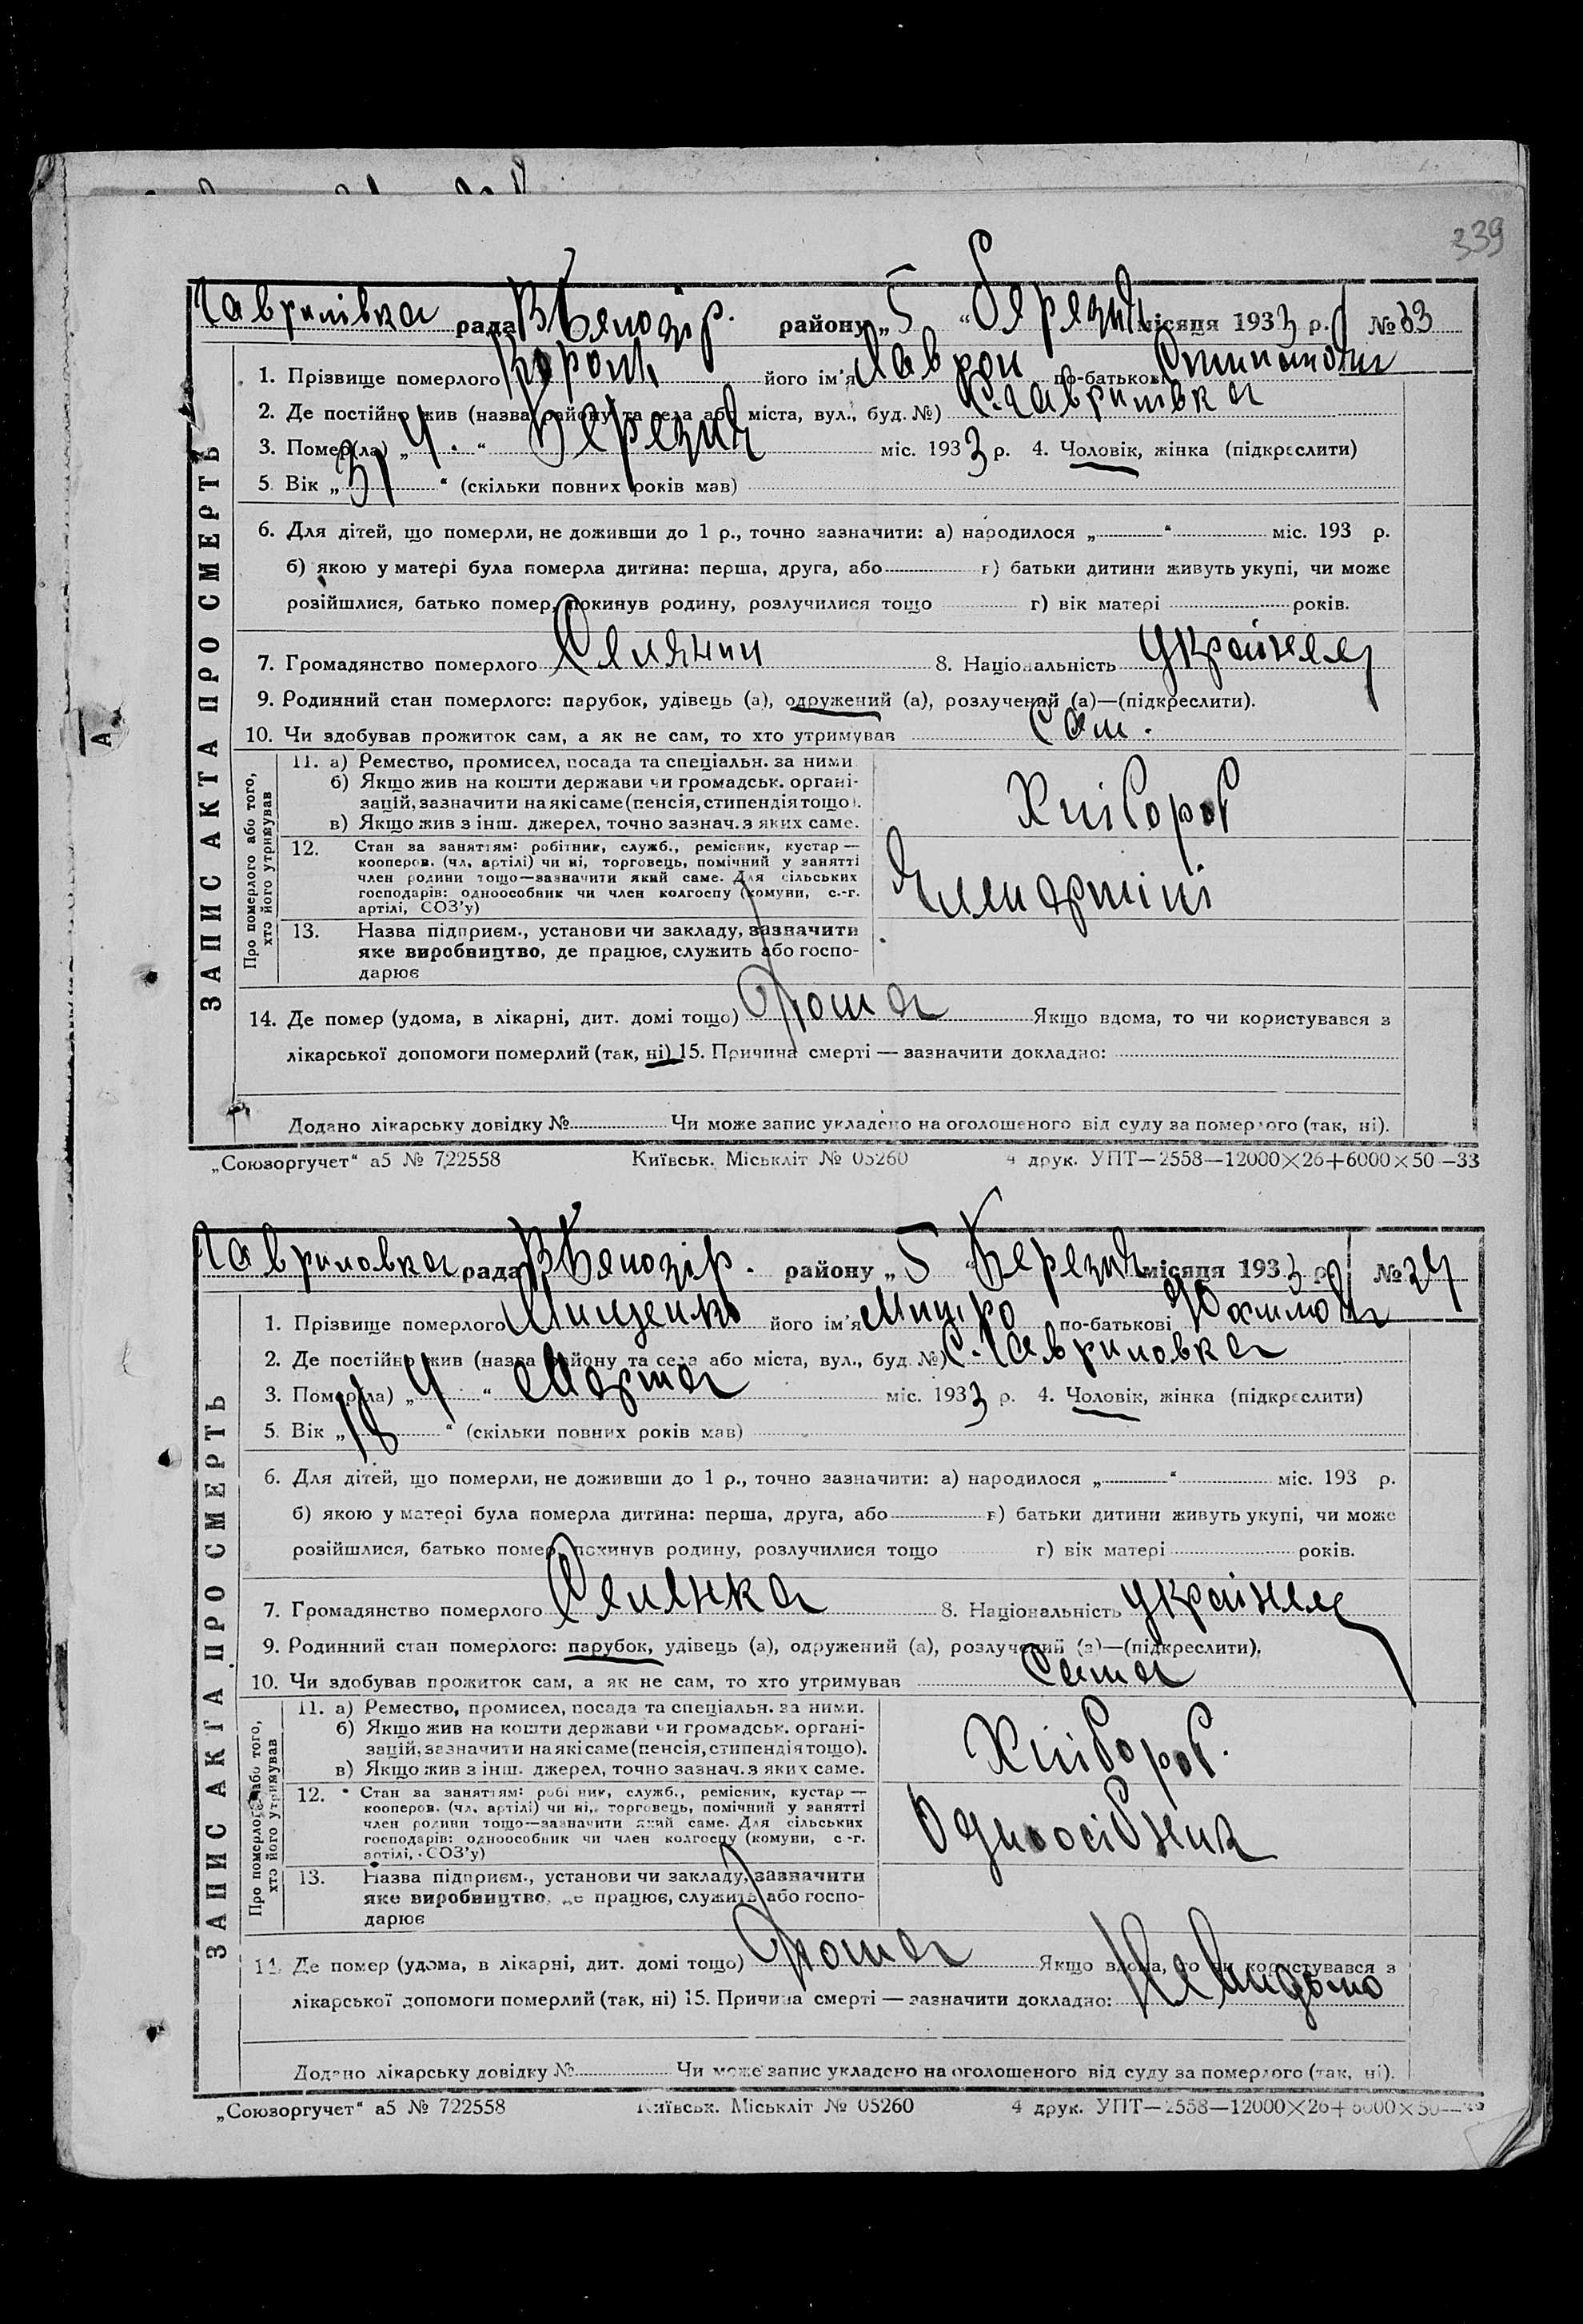 339
ЗАПИС АКТА ПРО СМЕРТЬ
Гаврилівка рада району „5 “ березня місяця 1933 р. № 33
1. Прізвище померлого Король його ім'я Лаврон по-батькові
2. Де постійно жив (назва району та села або міста, вул., буд. №) С. Гаврилівка
3. Помер(ла) „4“ Березня міс. 1933 р. 4. Чоловік, жінка (підкреслити)
5 Вік „31“ (скільки повних років мав)
6. Для дітей, що померли, не доживши до 1 р., точно зазначити: а) народилося „ “ міс. 193 р.
б) якою у матері була померла дитина: перша, друга, або г) батьки дитини живуть укупі, чи може
розійшлися, батько помер, покинув родину, розлучилися тощо г) вік матері років.
7. Громадянство померлого Селянин 8. Національність Українец
9. Родинний стан померлого: парубок, удівець (а), одружений (а), розлучений (а)—(підкреслити).
10. Чи здобував прожиток сам, а як не сам, то хто утримував Сам.
Про померлого або того, хто його утримував
11. а) Ремество, промисел, посада та спеціальн. за ними
б) Якщо жив на кошти держави чи громадськ. органі-
зацій, зазначити на які саме (пенсія, стипендія тощо).
в) Якщо жив з інш. джерел, точно зазнач. з яких саме.
Хлібороб
12. Стан за заняттям: робітник, служб., ремісник, кустар —
кооперов. (чл. артілі) чи ні, торговець, помічний у занятті
член родини тощо—зазначити який саме. Для сільських
господарів: одноосібник чи член колгоспу (комуни, с.-г.
артілі, СОЗ'у)
Член артілі
13. Назва підприєм., установи чи закладу, зазначити
яке виробництво, де працює, служить або госпо-
дарює
14. Де помер (удома, в лікарні, дит. домі тощо) Дома Якщо вдома, то чи користувався з
лікарської допомоги померлий (так, ні) 15. Причина смерті — зазначити докладно:
Додано лікарську довідку № Чи може запис укладено на оголошеного від суду за померлого (так, ні).
„Союзоргучет“ а5 № 722558 Київськ. Міськліт № 05260 4 друк. УПТ—2558—12000×26+6000×50—33
ЗАПИС АКТА ПРО СМЕРТЬ
Гавриловка рада району „5 “ Березня місяця 1933 р. № 34
1. Прізвище померлого Мищенко його ім'я по-батькові
2. Де постійно жив (назва району та села або міста, вул., буд. №) С. Гавриловка
3. Помер(ла) „4“ Марта міс. 1933 р. 4. Чоловік, жінка (підкреслити)
5. Вік „18“ (скільки повних років мав)
6. Для дітей, що померли, не доживши до 1 р., точно зазначити: а) народилося „ “ міс. 193 р.
б) якою у матері була померла дитина: перша, друга, або в) батьки дитини живуть укупі, чи може
розійшлися, батько помер, покинув родину, розлучилися тощо г) вік матері років.
7. Громадянство померлого Селянка 8. Національність українец
9. Родинний стан померлого: парубок, удівець (а), одружений (а), розлучений (а)—(підкреслити).
10. Чи здобував прожиток сам, а як не сам, то хто утримував Сама
Про померлого або того, хто його утримував
11. а) Ремество, промисел, посада та спеціальн. за ними.
б) Якщо жив на кошти держави чи громадськ. органі-
зацій, зазначити на які саме (пенсія, стипендія тощо).
в) Якщо жив з інш. джерел, точно зазнач. з яких саме.
Хлібороб.
12. Стан за заняттям: робітник, служб., ремісник, кустар —
кооперов. (чл. артілі) чи ні, торговець, помічний у занятті
член родини тощо—зазначити який саме. Для сільських
господарів: одноосібник чи член колгоспу (комуни, с.-г.
артілі, СОЗ'у)
Одноосібник
13. Назва підприєм., установи чи закладу, зазначити
яке виробництво, де працює, служить або госпо-
дарює
14. Де помер (удома, в лікарні, дит. домі тощо) Дома Якщо вдома, то чи користувався з
лікарської допомоги померлий (так, ні) 15. Причина смерті — зазначити докладно:
Додано лікарську довідку № Чи може запис укладено на оголошеного від суду за померлого (так, ні).
„Союзоргучет“ а5 № 722558 Київськ. Міськліт № 05260 4 друк. УПТ—2558—12000×26+6000×50—33